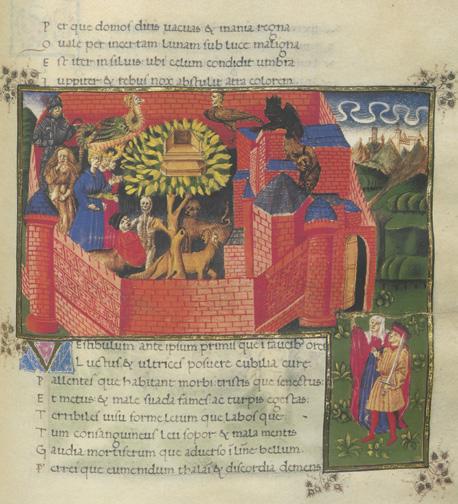 P er que domos ditis vacuas & inania regna
Q uale per incertam lunam sub luce maligna
E st iter in siluis ubi celum condidit umbra
I uppiter & rebus nox abstulit atra colorem
V estibulum ante ipsum primis que i faucib' orci
L uctus & ultrices posuere cubilia cure
P allentes que habitant morbi tristis que senectus:
E t metus & male suada fames ac turpis egestas:
T erribiles uisu forme letum que labos que:
T um consanguineus leti sopor & mala mentis
G audia mortiferum que aduerso i limine bellum
F errei que eumenidum thalai & discordia demens